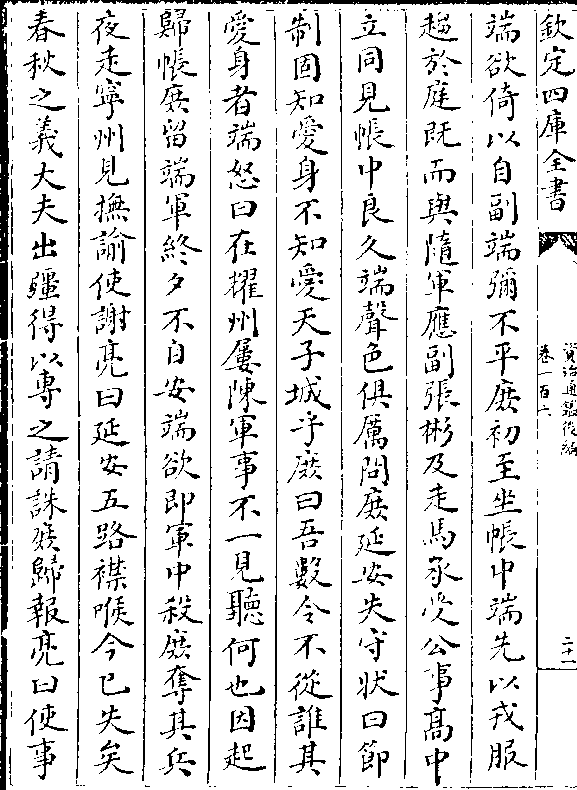 欽定四庫全書
資治通鑑後編
卷一百六
二十一
端欲倚以自副端彌不平庶初至坐帳中端先以戎服
趨於庭既而與隨軍應副張彬及走馬承受公事高中
立同見帳中良久端聲色俱厲問庶延安失守狀曰節
制固知愛身不知愛天子城乎庶曰吾數令不從誰其
愛身者端怒曰在耀州屢陳軍事不一見聽何也因起
歸帳庶留端軍終夕不自安端欲即軍中殺庶奪其兵
夜走寧州見撫諭使謝亮曰延安五路襟喉今已失矣
春秋之義大夫出疆得以專之請誅庶歸報亮曰使事